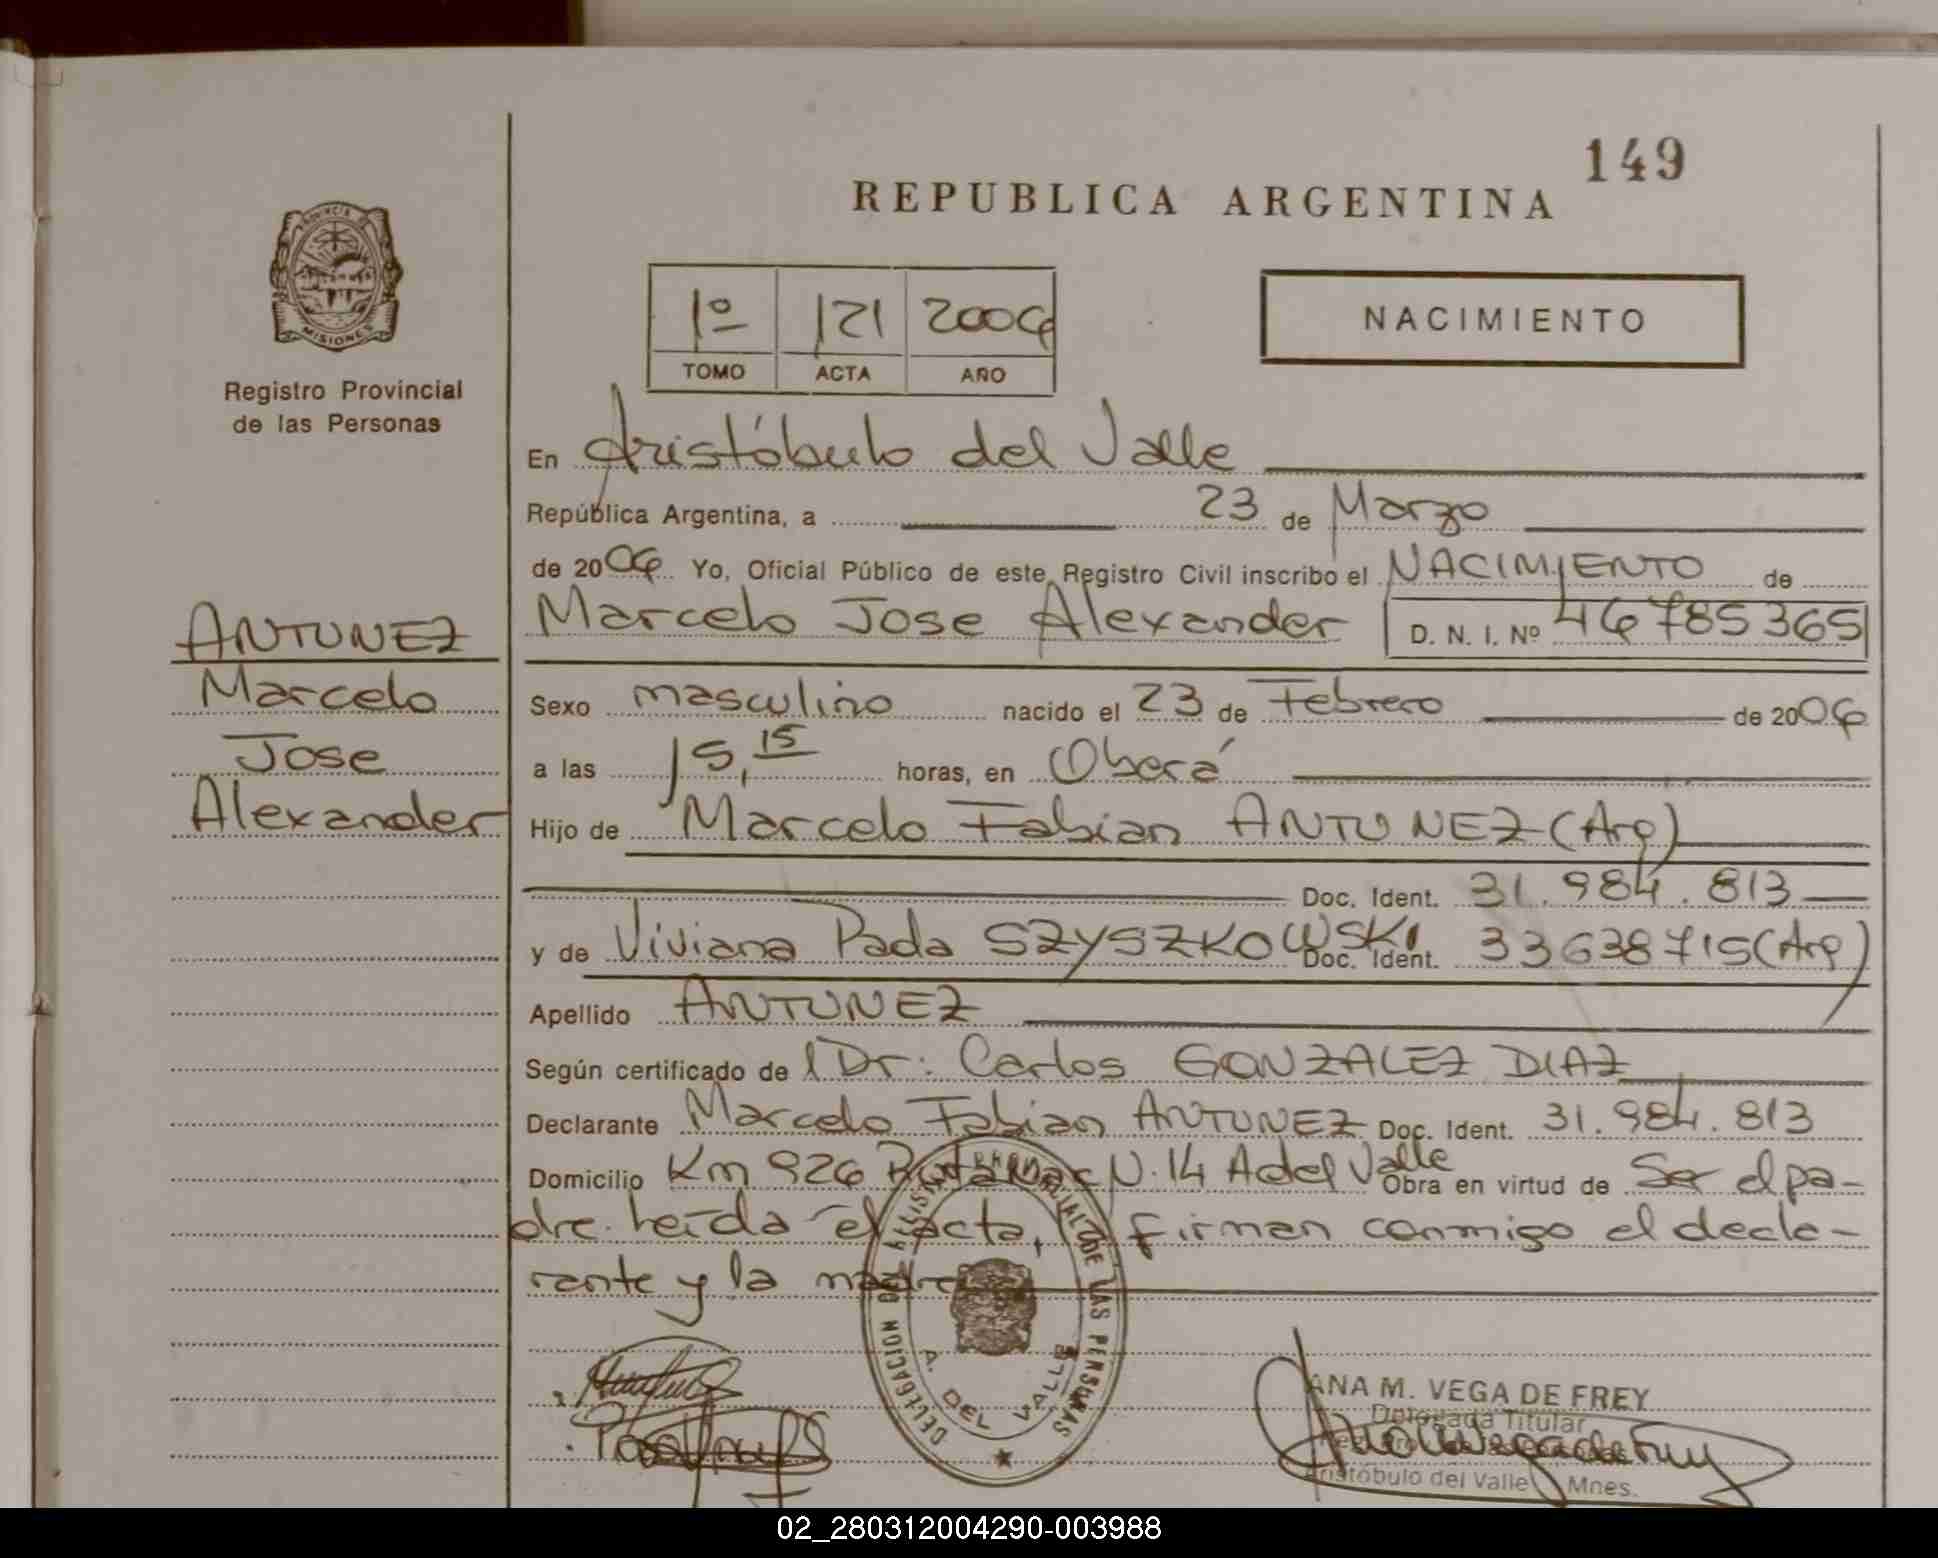 149
REPUBLICA ARGENTINA
PROVINCIA DE
MISIONES
Registro Provincial
de las Personas
1º 121 2006
TOMO ACTA AÑO
NACIMIENTO
En Aristóbulo del Valle
República Argentina, a 23 de Marzo
de 2006 Yo, Oficial Público de este Registro Civil inscribo el NACIMIENTO de
Marcelo Jose Alexander D. N. I. Nº 46785365
ANTUNEZ
Marcelo
Jose
Alexander
Sexo masculino nacido el 23 de Febrero de 2006
a las 15,15 horas, en Oberá
Hijo de Marcelo Fabian ANTUNEZ (Arg)
Doc. Ident. 31.984.813
y de Viviana SZYSZKOWSKI Doc. Ident. 33638715 (Arg)
Apellido ANTUNEZ
Según certificado de l Dr. Carlos GONZALEZ DIAZ
Declarante Marcelo Fabian ANTUNEZ Doc. Ident. 31.984.813
Domicilio Km 926 Ruta Nac N. 14 A del Valle Obra en virtud de Ser el pa-
dre. Leída el acta, firman conmigo el decla-
rante y la madre
DELEGACION REGISTRO PROVINCIAL DE LAS PERSONAS
A. DEL VALLE
ANA M. VEGA DE FREY
Delegada Titular
Aristóbulo del Valle Mnes.
02_280312004290-003988